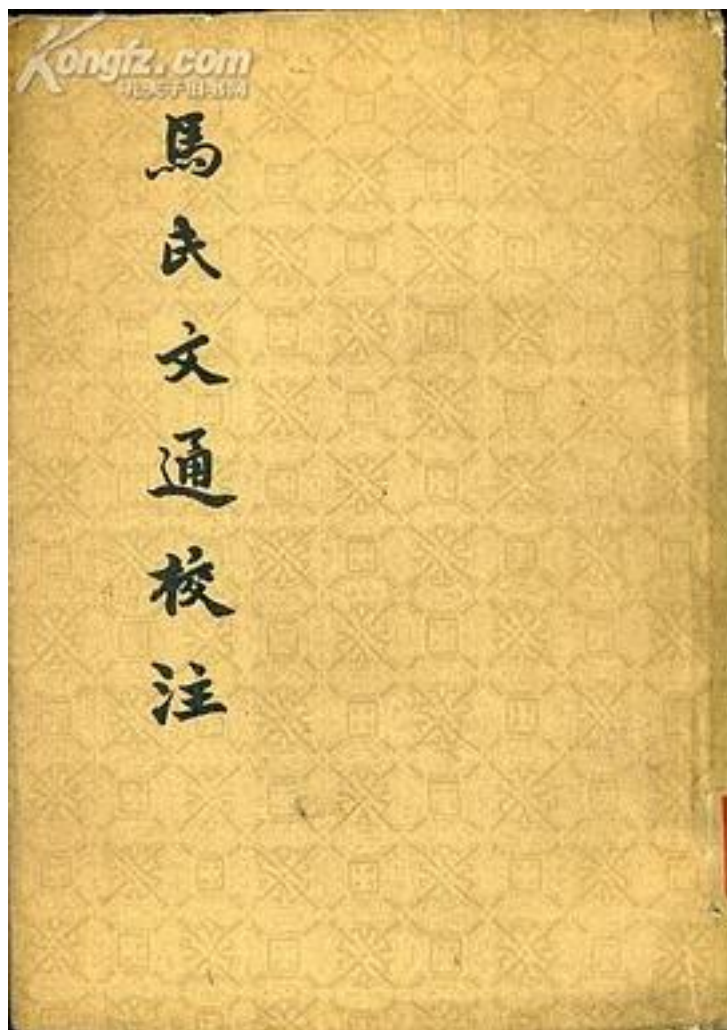 Kongfz.com
孔夫子旧书网
馬氏文通校注